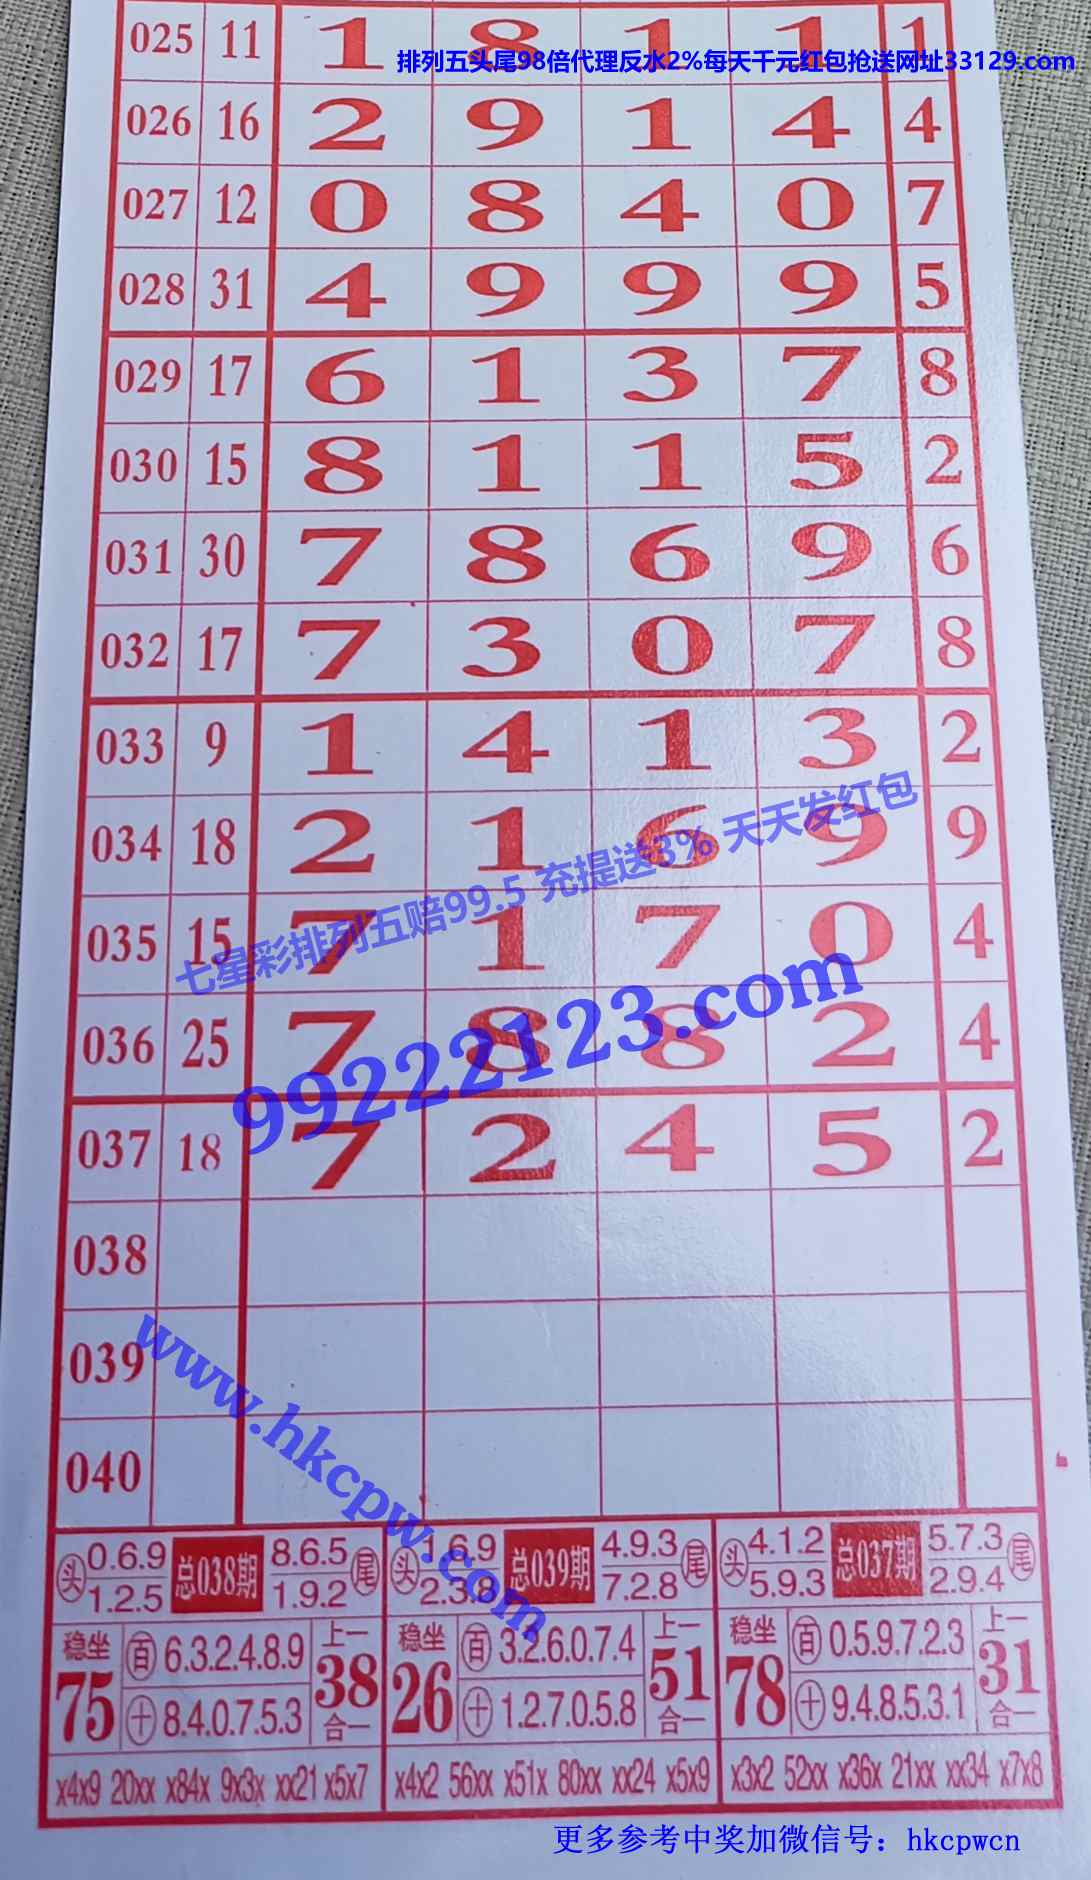 025 11 1 8 1 1 1
排列五头尾98倍代理反水2%每天千元红包抢送网址33129.com
026 16 2 9 1 4 4
027 12 0 8 4 0 7
028 31 4 9 9 9 5
029 17 6 1 3 7 8
030 15 8 1 1 5 2
031 30 7 8 6 9 6
032 17 7 3 0 7 8
033 9 1 4 1 3 2
034 18 2 1 6 9 9
七星彩排列五赔99.5 充提送3% 天天发红包
035 15 7 1 7 0 4
99222123.com
036 25 7 8 8 2 4
037 18 7 2 4 5 2
038
039
www.hkcpw.com
040
头 0.6.9 1.2.5 总038期 8.6.5 1.9.2 尾
头 1.6.9 2.3.8 总039期 4.9.3 7.2.8 尾
头 4.1.2 5.9.3 总037期 5.7.3 2.9.4 尾
稳坐 75 百 6.3.2.4.8.9 十 8.4.0.7.5.3 上一 38 合一
稳坐 26 百 3.2.6.0.7.4 十 1.2.7.0.5.8 上一 51 合一
稳坐 78 百 0.5.9.7.2.3 十 9.4.8.5.3.1 上一 31 合一
x4x9 20xx x84x 9x3x xx21 x5x7
x4x2 56xx x51x 80xx xx24 x5x9
x3x2 52xx x36x 21xx xx34 x7x8
更多参考中奖加微信号：hkcpwcn